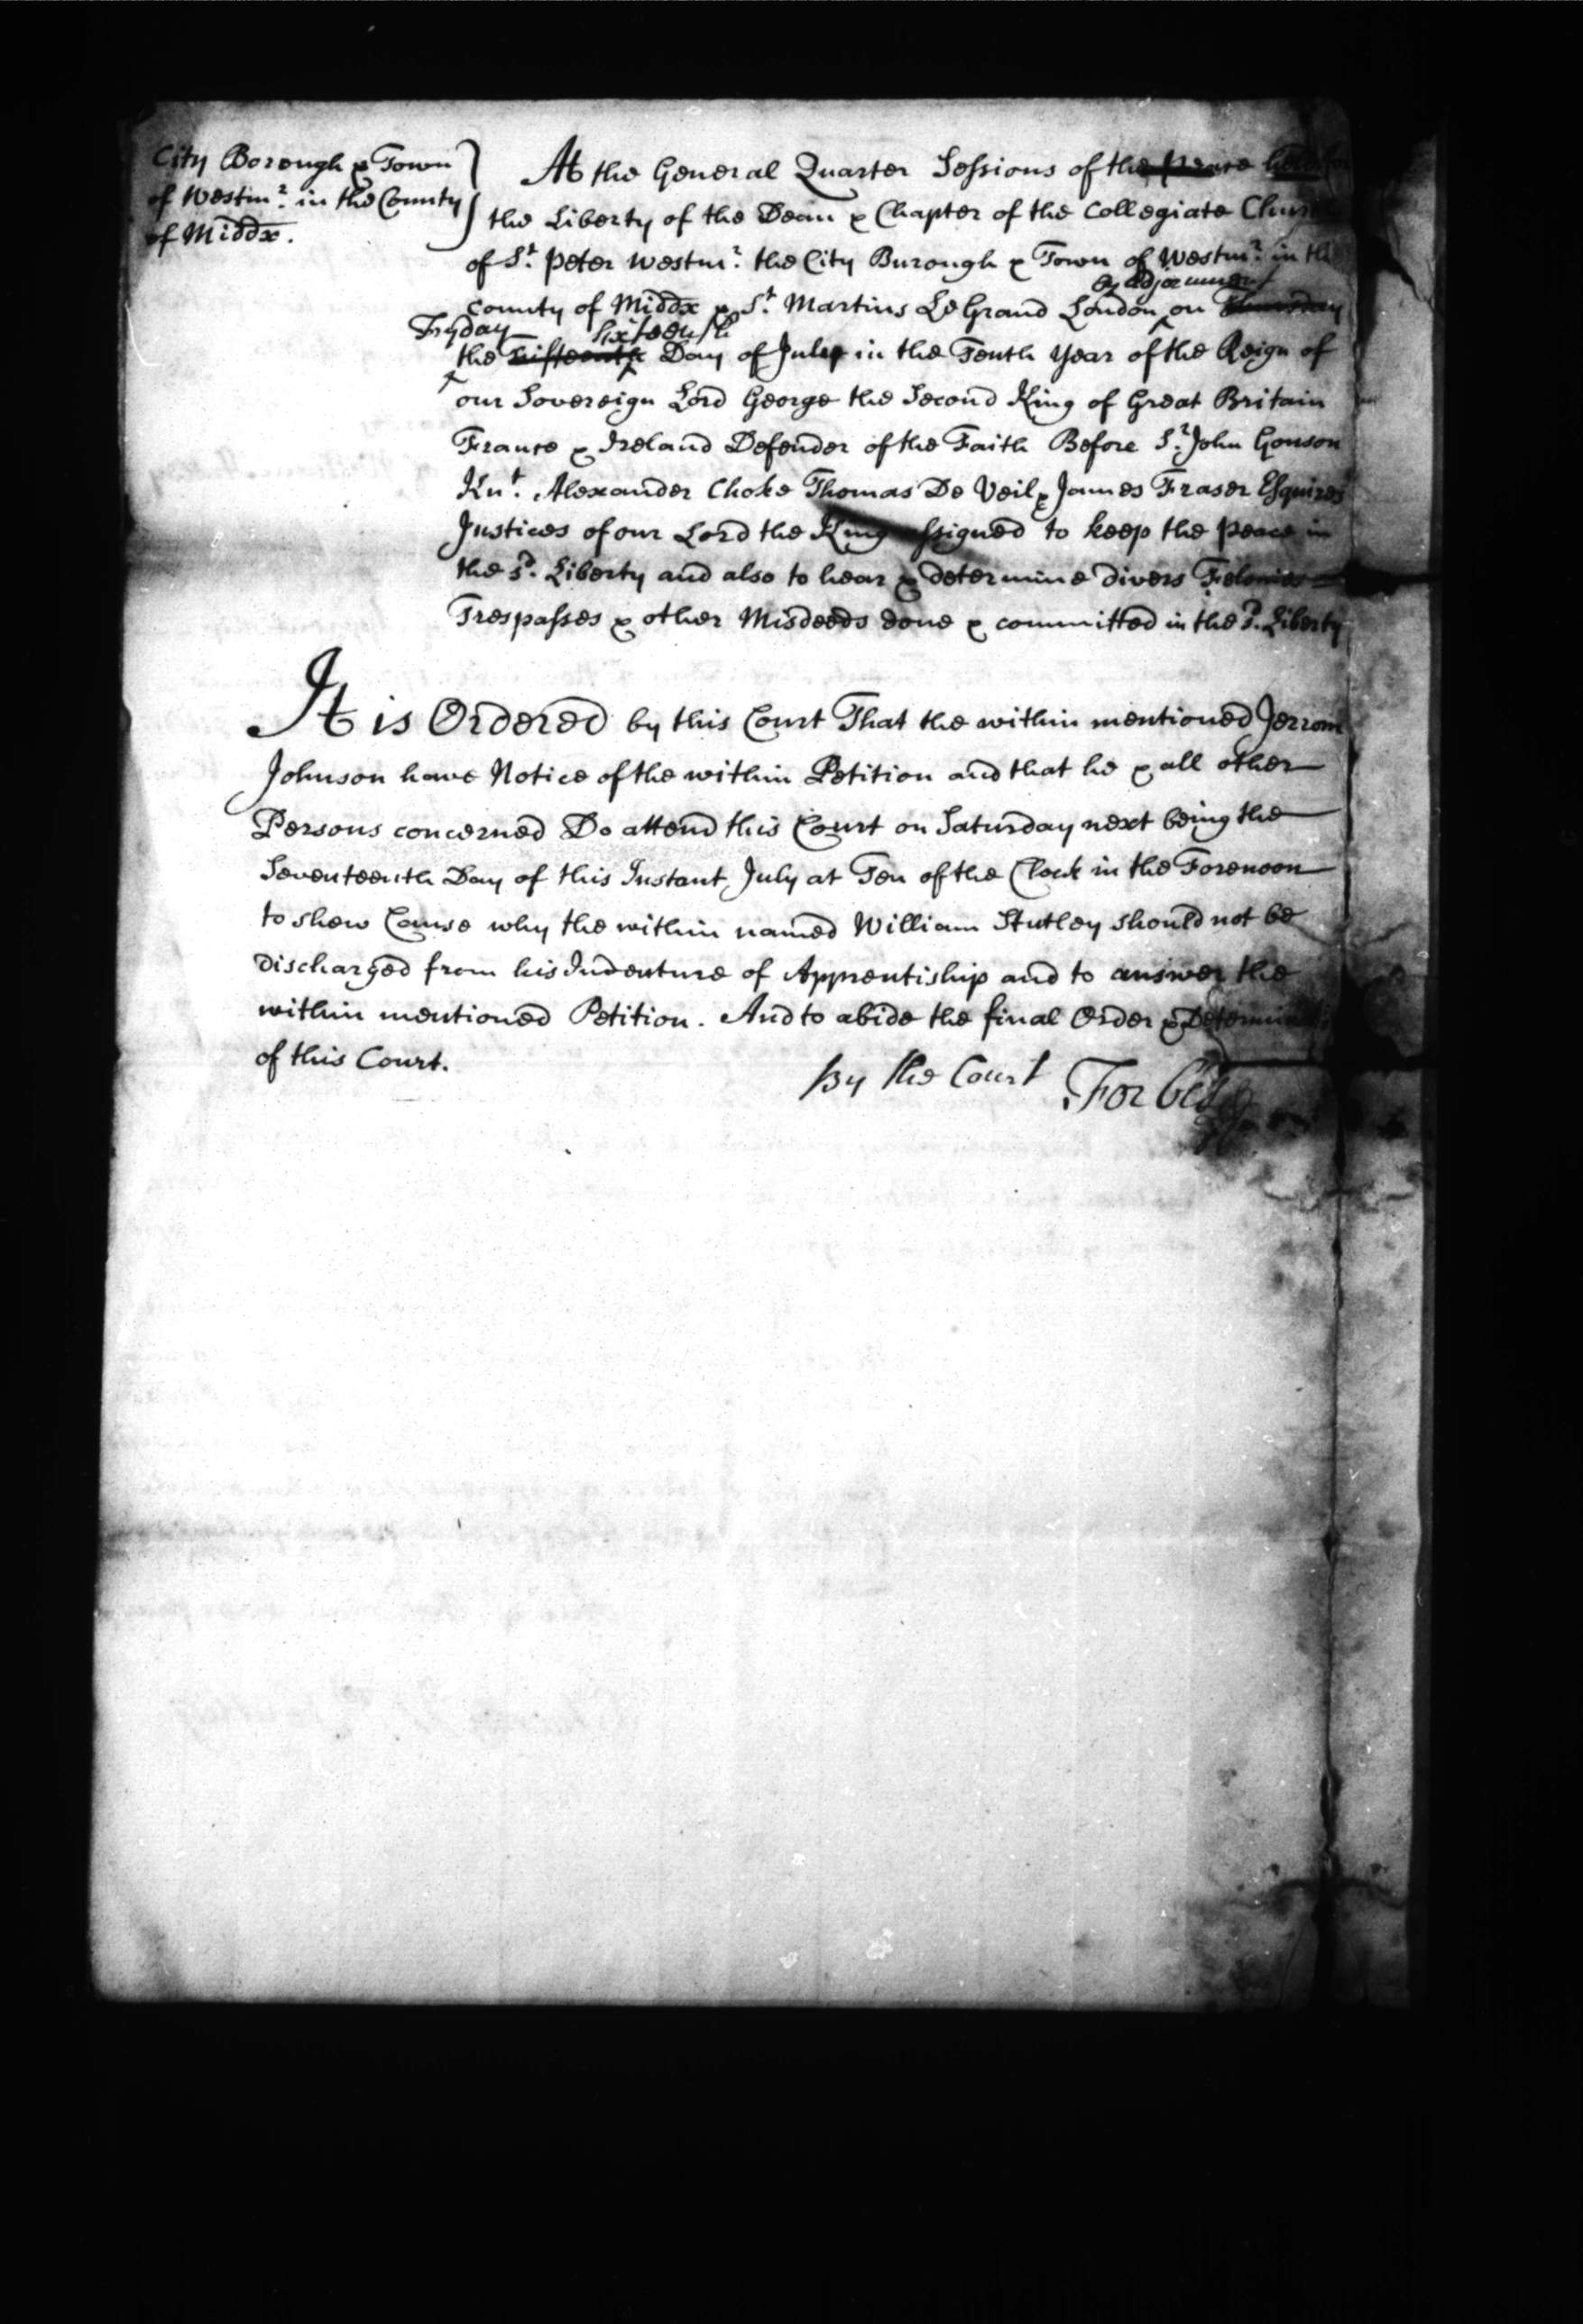 City Borough & Town
of Westmr. in the County
of Middx.
At the General Quarter Sessions of the Peace
the Liberty of the Dean & Chapter of the Collegiate Church
of St. Peter Westmr. the City Burough & Town of Westmr. in the
by adjournment
County of Middx & St. Martins Le Grand London on Thursday
Fryday sixteenth
the fifteenth Day of July in the Tenth Year of the Reign of
our Sovereign Lord George the Second King of Great Britain
France & Ireland Defender of the Faith Before Sr. John Gonson
Knt. Alexander Choke Thomas De Veil & James Fraser Esquires
Justices of our Lord the King assigned to keep the Peace in
the sd. Liberty and also to hear & determine divers Felonies
Trespasses & other Misdeeds done & committed in the sd. Liberty
It is Ordered by this Court That the within mentioned Jerrom
Johnson have Notice of the within Petition and that he & all other
Persons concerned Do attend this Court on Saturday next being the
Seventeenth Day of this Instant July at Ten of the Clock in the Forenoon
to shew Cause why the within named William Stutley should not be
discharged from his Indenture of Apprentiship and to answer the
within mentioned Petition. And to abide the final Order &
of this Court.
By the Court Forbes